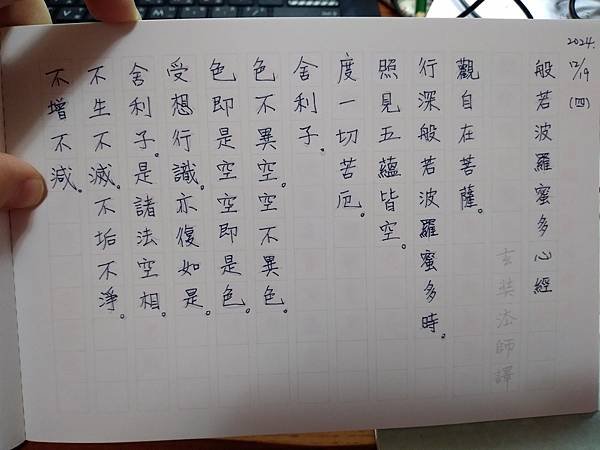 2024.
12/19
(四)
般若波羅蜜多心經
玄奘法師譯
觀自在菩薩。
行深般若波羅蜜多時。
照見五蘊皆空。
度一切苦厄。
舍利子。
色不異空。空不異色。
色即是空空即是色。
受想行識。亦復如是。
舍利子。是諸法空相。
不生不滅。不垢不淨。
不增不減。